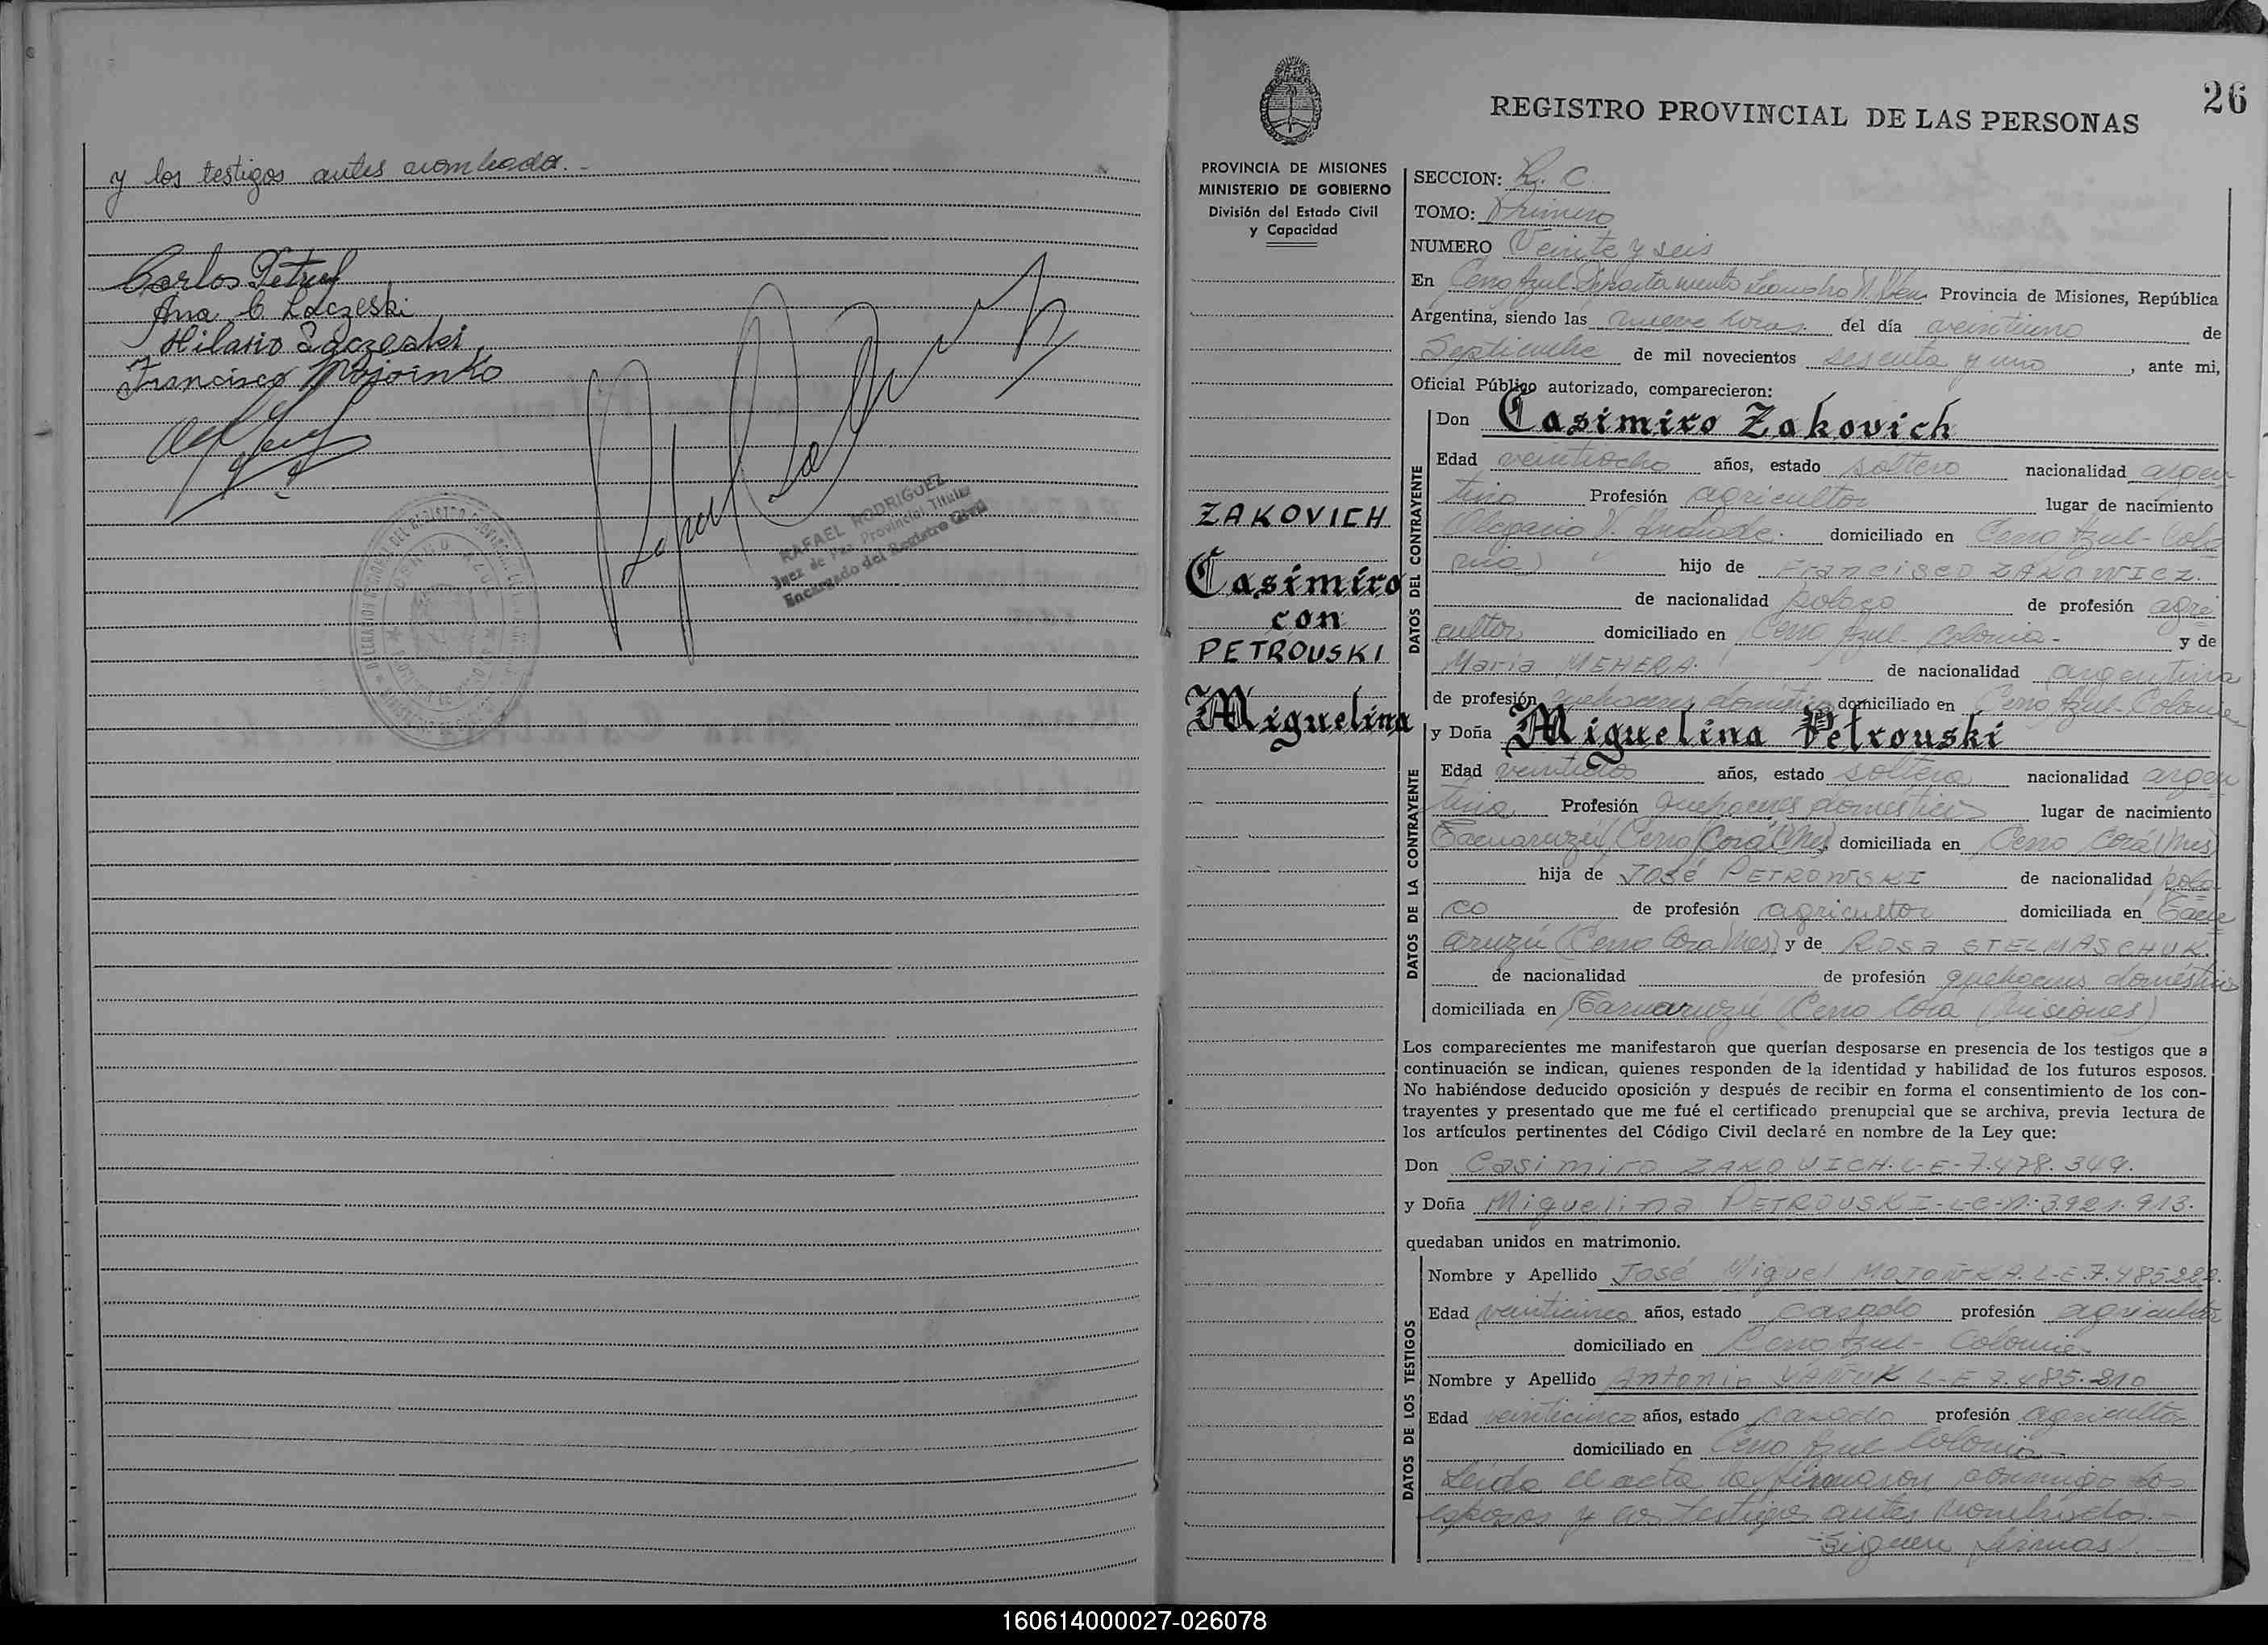 y los testigos antes nombrados.-
Carlos Petruf
Ana C. Laczeski
Hilario Laczeski
Francisco Mojoinko
RAFAEL RODRIGUEZ
Juez de Paz Provincial Titular
Encargado del Registro Civil
CERRO AZUL
26
REGISTRO PROVINCIAL DE LAS PERSONAS
PROVINCIA DE MISIONES
MINISTERIO DE GOBIERNO
División del Estado Civil
y Capacidad
ZAKOVICH
Casimiro
con
PETROUSKI
Miguelina
SECCION: R. C.
TOMO: Primero
NUMERO Veinte y seis
En Cerro Azul Departamento Leandro N. Alem Provincia de Misiones, República
Argentina, siendo las nueve horas del día veintiuno de
Septiembre de mil novecientos sesenta y uno, ante mi,
Oficial Público autorizado, comparecieron:
DATOS DEL CONTRAYENTE
Don Casimiro Zakovich
Edad veintiocho años, estado soltero nacionalidad argen
tino Profesión agricultor lugar de nacimiento
Olegario V. Andrade. domiciliado en Cerro Azul- Colo
nia) hijo de Francisco ZAKOWICZ.
de nacionalidad polaco de profesión agri
cultor domiciliado en Cerro Azul- Colonia- y de
María MEHERA. de nacionalidad argentina
de profesión quehaceres domésticos domiciliado en Cerro Azul-Colonia
DATOS DE LA CONTRAYENTE
y Doña Miguelina Petrouski
Edad veintidos años, estado soltera nacionalidad argen
tina Profesión quehaceres domésticos lugar de nacimiento
Tacuaruzú (Cerro Corá (Mes) domiciliada en Cerro Corá (Mes)
hija de José PETROWSKI de nacionalidad pola-
co de profesión agricultor domiciliada en Tacu
aruzú (Cerro Cora Mes) y de Rosa STELMASCHUK.
de nacionalidad de profesión quehaceres domésticos
domiciliada en Tacuaruzú (Cerro Cora (Misiones)
Los comparecientes me manifestaron que querían desposarse en presencia de los testigos que a
continuación se indican, quienes responden de la identidad y habilidad de los futuros esposos.
No habiéndose deducido oposición y después de recibir en forma el consentimiento de los con-
trayentes y presentado que me fué el certificado prenupcial que se archiva, previa lectura de
los artículos pertinentes del Código Civil declaré en nombre de la Ley que:
Don Casimiro ZAKOVICH. L-E-7.478.349.
y Doña Miguelina PETROUSKI-L-C-N: 3.921.913.
quedaban unidos en matrimonio.
DATOS DE LOS TESTIGOS
Nombre y Apellido José Miguel MOJOÑKA. L-E.7.485222.
Edad veinticinco años, estado casado profesión agricultor
domiciliado en Cerro Azul- Colonia-
Nombre y Apellido Antonio YAÑUK L-E 7.485.210
Edad veinticinco años, estado casado profesión agricultor
domiciliado en Cerro Azul Colonia-
Leída el acta la firmaron conmigo los
esposos y los testigos antes nombrados.-
Siguen firmas.-
160614000027-026078